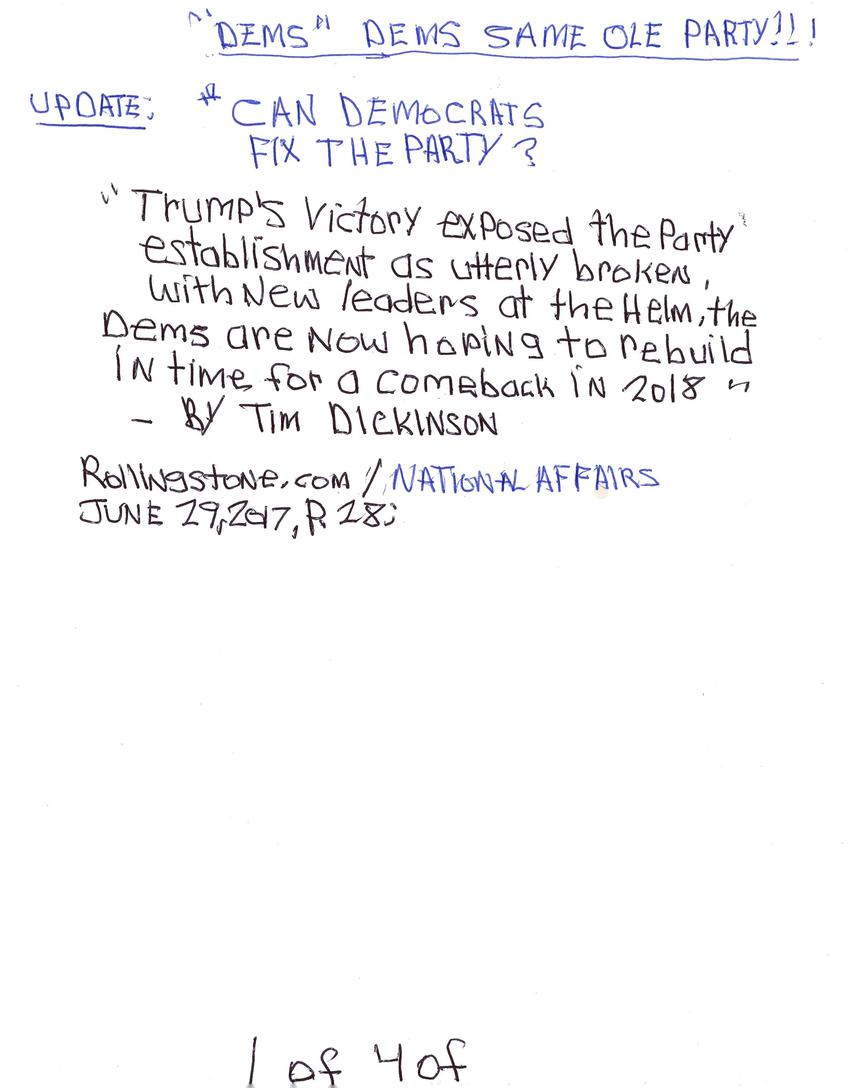 "DEMS" DEMS SAME OLE PARTY!!!
UPDATE: * CAN DEMOCRATS
FIX THE PARTY?
"Trump's Victory exposed the Party
establishment as utterly broken,
with New leaders at the Helm, the
Dems are Now hoping to rebuild
IN time for a comeback in 2018"
- By TIM DICKINSON
Rollingstone.com // NATIONAL AFFAIRS
JUNE 29, 2017, P. 28;
1 of 4 of